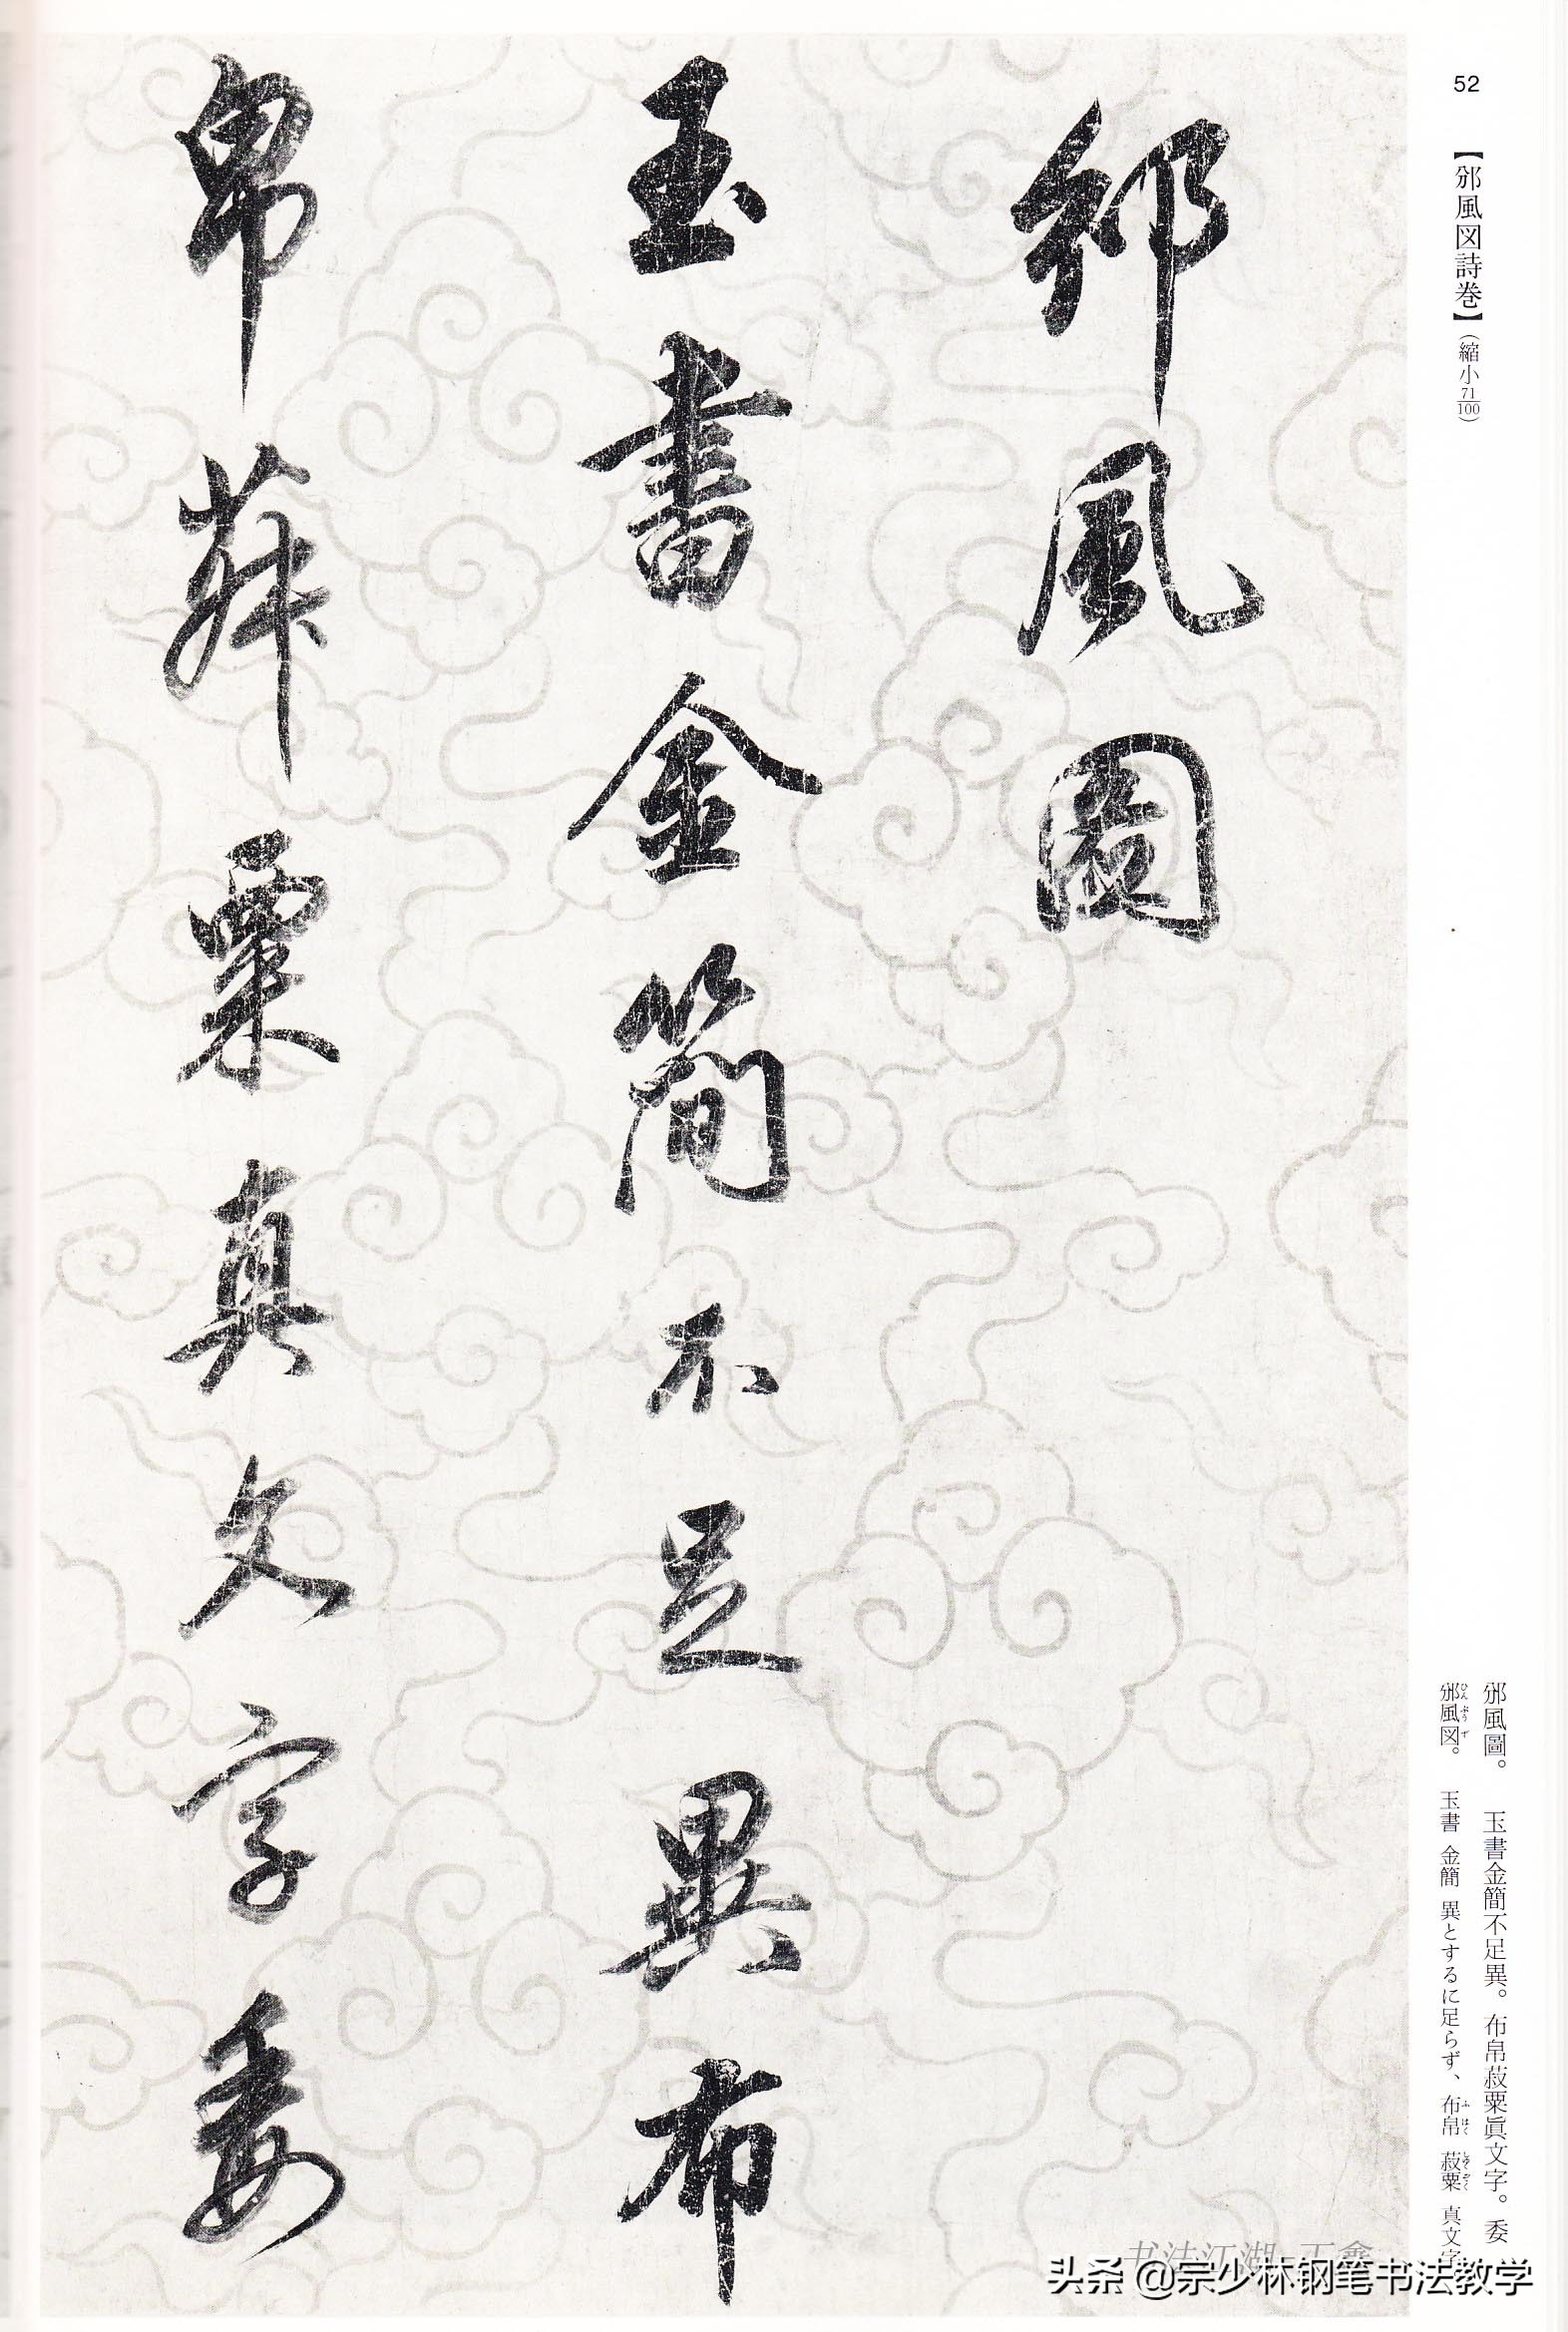 52
【邠風図詩巻】(縮小71/100)
邠風圖
玉書金簡不足異布
帛菽粟真文字委
邠風圖。 玉書金簡不足異。布帛菽粟眞文字。委
邠風図。 玉書 金簡 異とするに足らず、布帛 菽粟 真文字
ひんぷうず ふはく しゅくぞく
书法江湖
头条 @宗少林钢笔书法教学